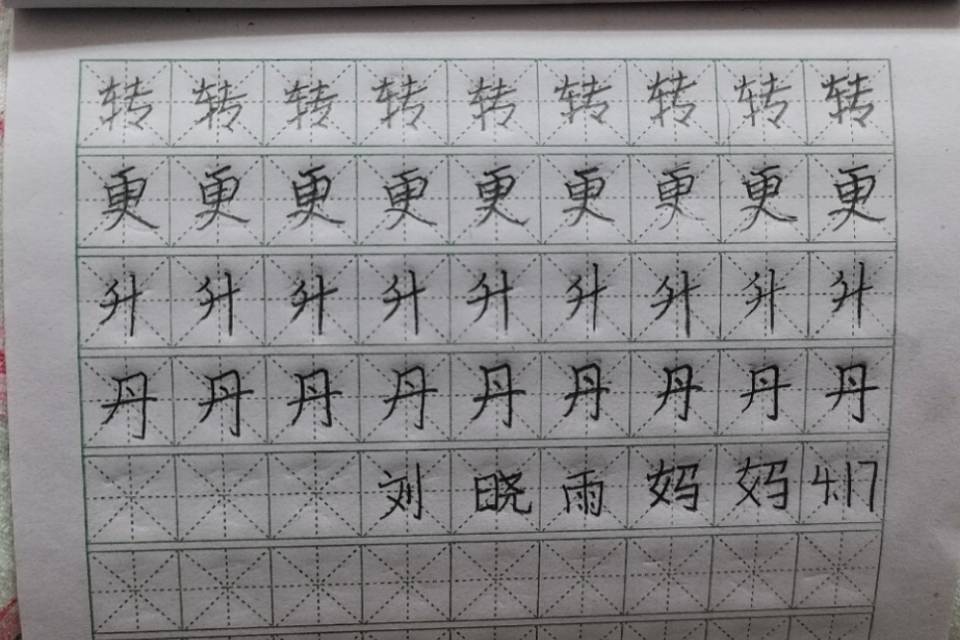 转转转转转转转转转
更更更更更更更更更
升升升升升升升升升
丹丹丹丹丹丹丹丹丹
刘晓雨妈妈4.17